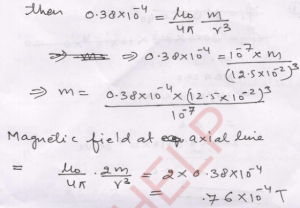 then 0.38×10⁻⁴ = μ₀/4π m/r³
⇒ 0.38×10⁻⁴ = 10⁻⁷ × m/(12.5×10⁻²)³
⇒ m = 0.38×10⁻⁴ × (12.5×10⁻²)³/10⁻⁷
Magnetic field at axial line
= μ₀/4π · 2m/r³ = 2×0.38×10⁻⁴
= .76×10⁻⁴ T
HELP